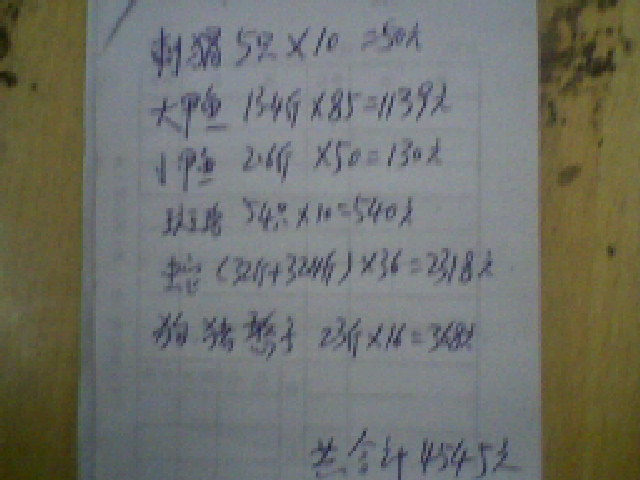 刺猬 5只×10 =50元
大甲鱼 13.4斤×85=1139元
小甲鱼 2.6斤 ×50=130元
54只×10=540元
(32斤+32.4斤)×36=2318元
23斤×16=368元
共合计 4545元